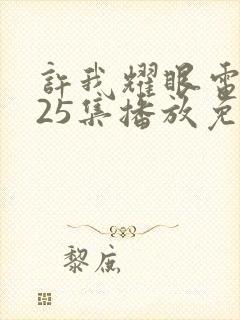 許我耀眼電
25集播放免
黎底